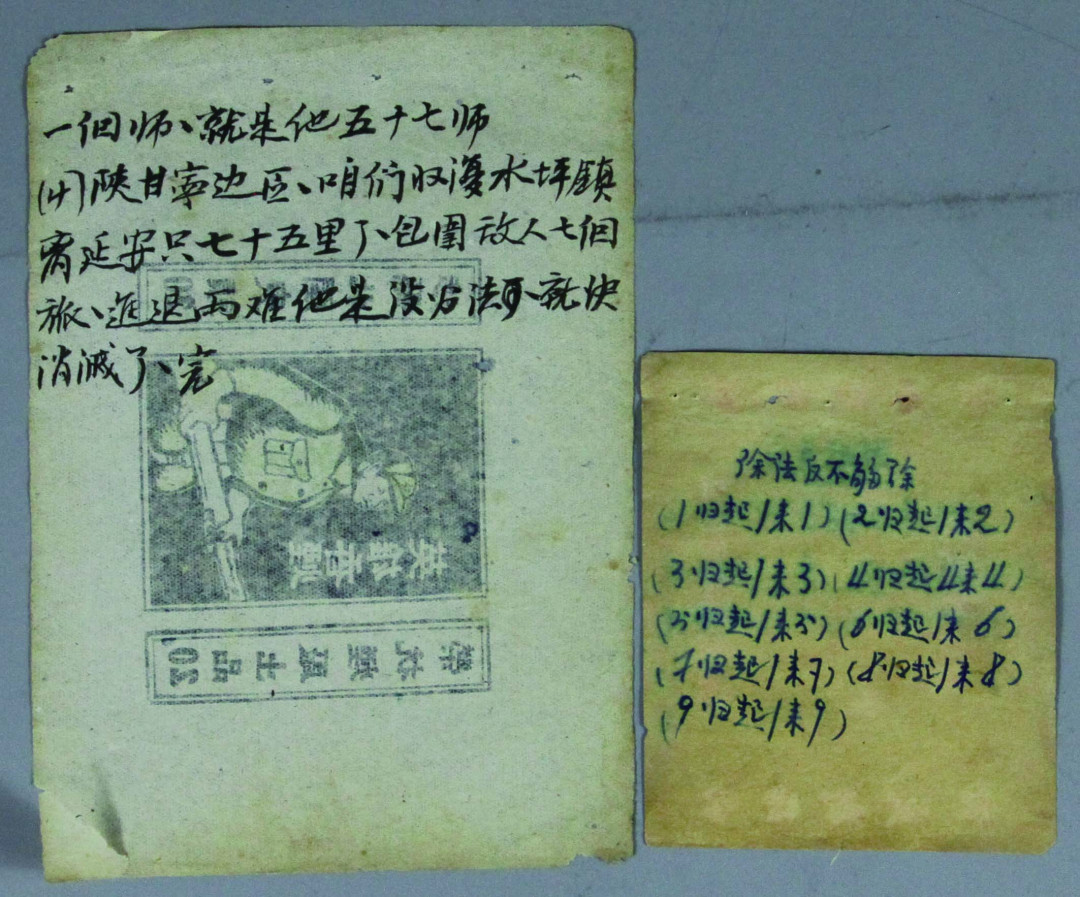 一個师、就是他五十七师
(4)陕甘寧边区、咱们收復水坪鎮
离延安只七十五里了包圍敌人七個
旅、進退两难他是没办法就快
消滅了、完
除法反不够除
(1归起1来1)(2归起1来2)
(3归起1来3)(4归起4来4)
(5归起1来5)(6归起1来6)
(7归起1来7)(8归起1来8)
(9归起1来9)